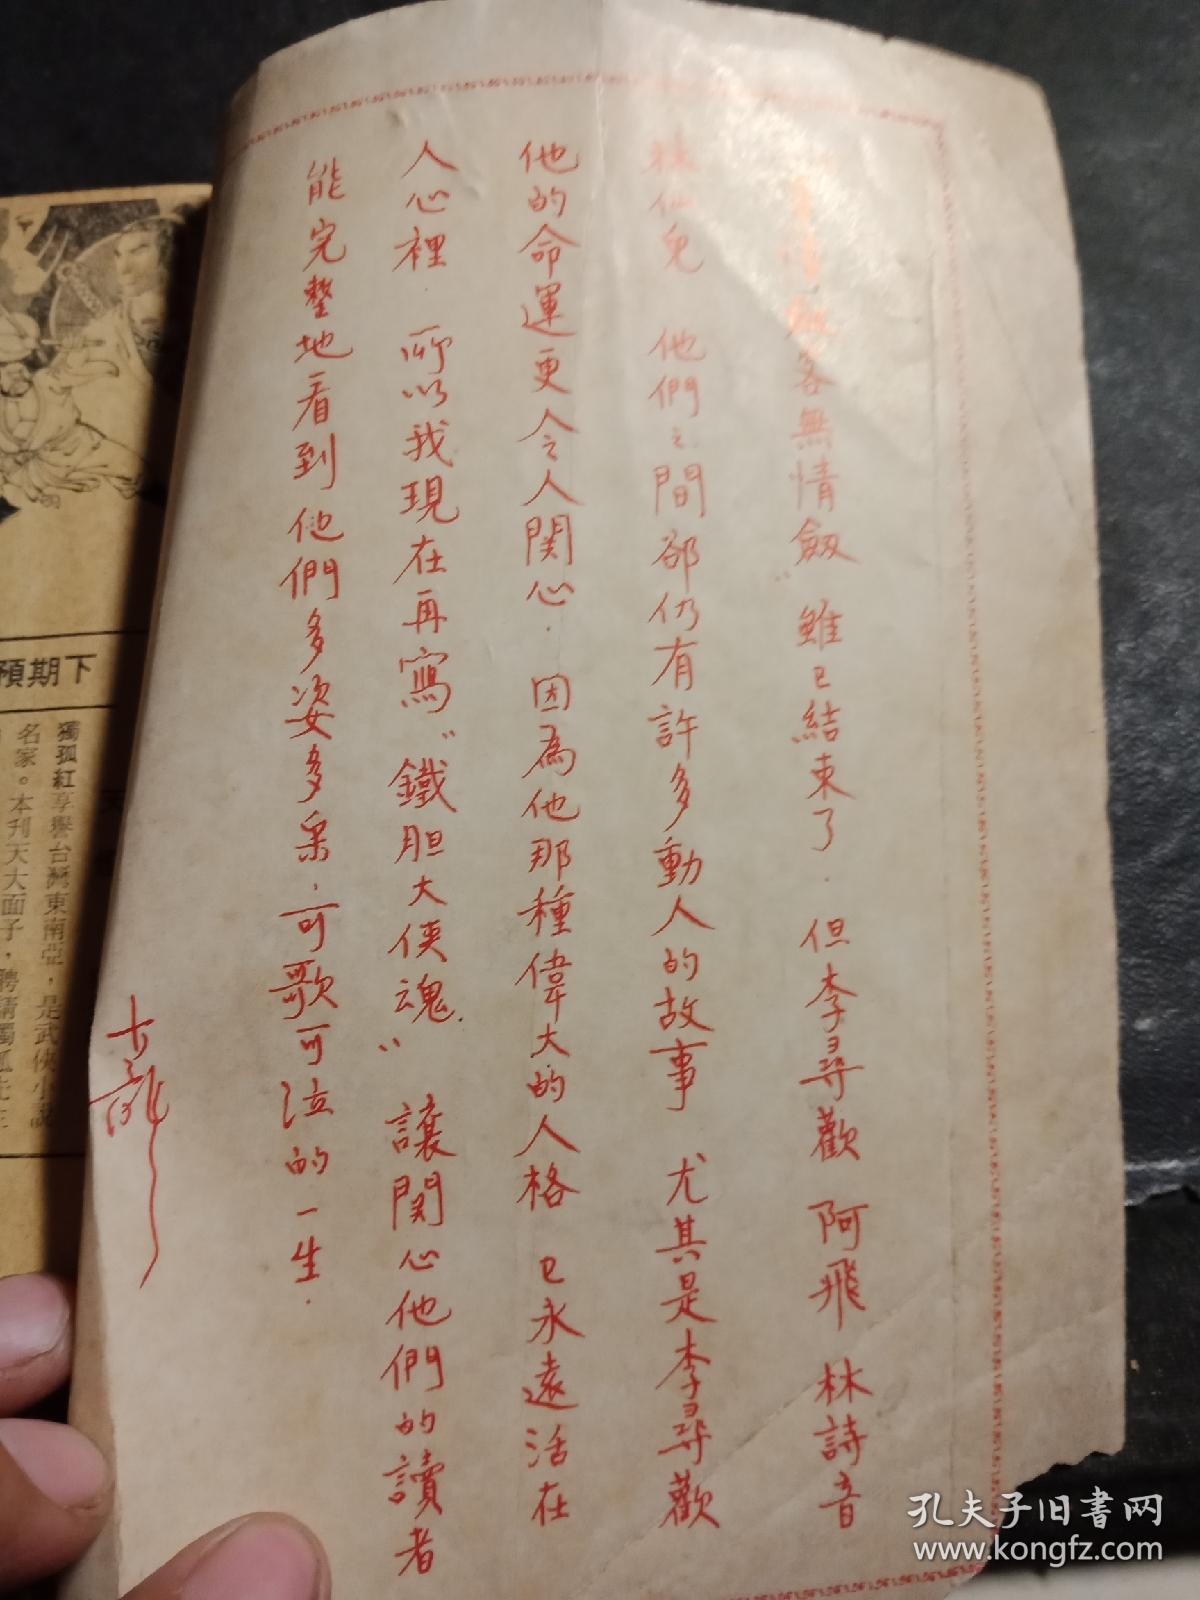 多情劍客無情劍” 雖已結束了．但李尋歡 阿飛 林詩音
林仙兒 他們之間卻仍有許多動人的故事 尤其是李尋歡
他的命運更令人関心．因為他那種偉大的人格 已永遠活在
人心裡．所以我現在再寫“鐵胆大俠魂．”讓関心他們的讀者
能完整地看到他們多姿多采．可歌可泣的一生．
古龍
下期預
獨孤紅享譽台灣東南亞，是武俠小說
名家。本刊天大面子，聘請獨孤先生
孔夫子旧书网
www.kongfz.com